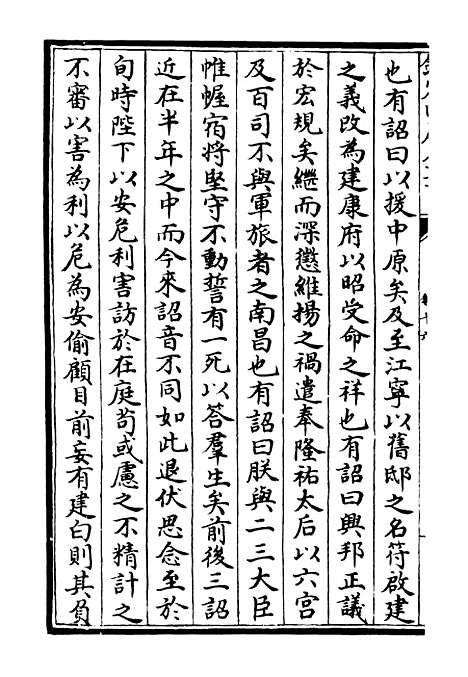 也有詔曰以援中原矣及至江寧以舊邸之名符啟建
之義改為建康府以昭受命之祥也有詔曰興邦正議
於宏規矣繼而深懲維揚之禍遣奉隆祐太后以六宮
及百司不與軍旅者之南昌也有詔曰朕與二三大臣
帷幄宿將堅守不動誓有一死以答羣生矣前後三詔
近在半年之中而今來詔音不同如此退伏思念至於
旬時陛下以安危利害訪於在庭苟或慮之不精計之
不審以害為利以危為安偷顧目前妄有建白則其負